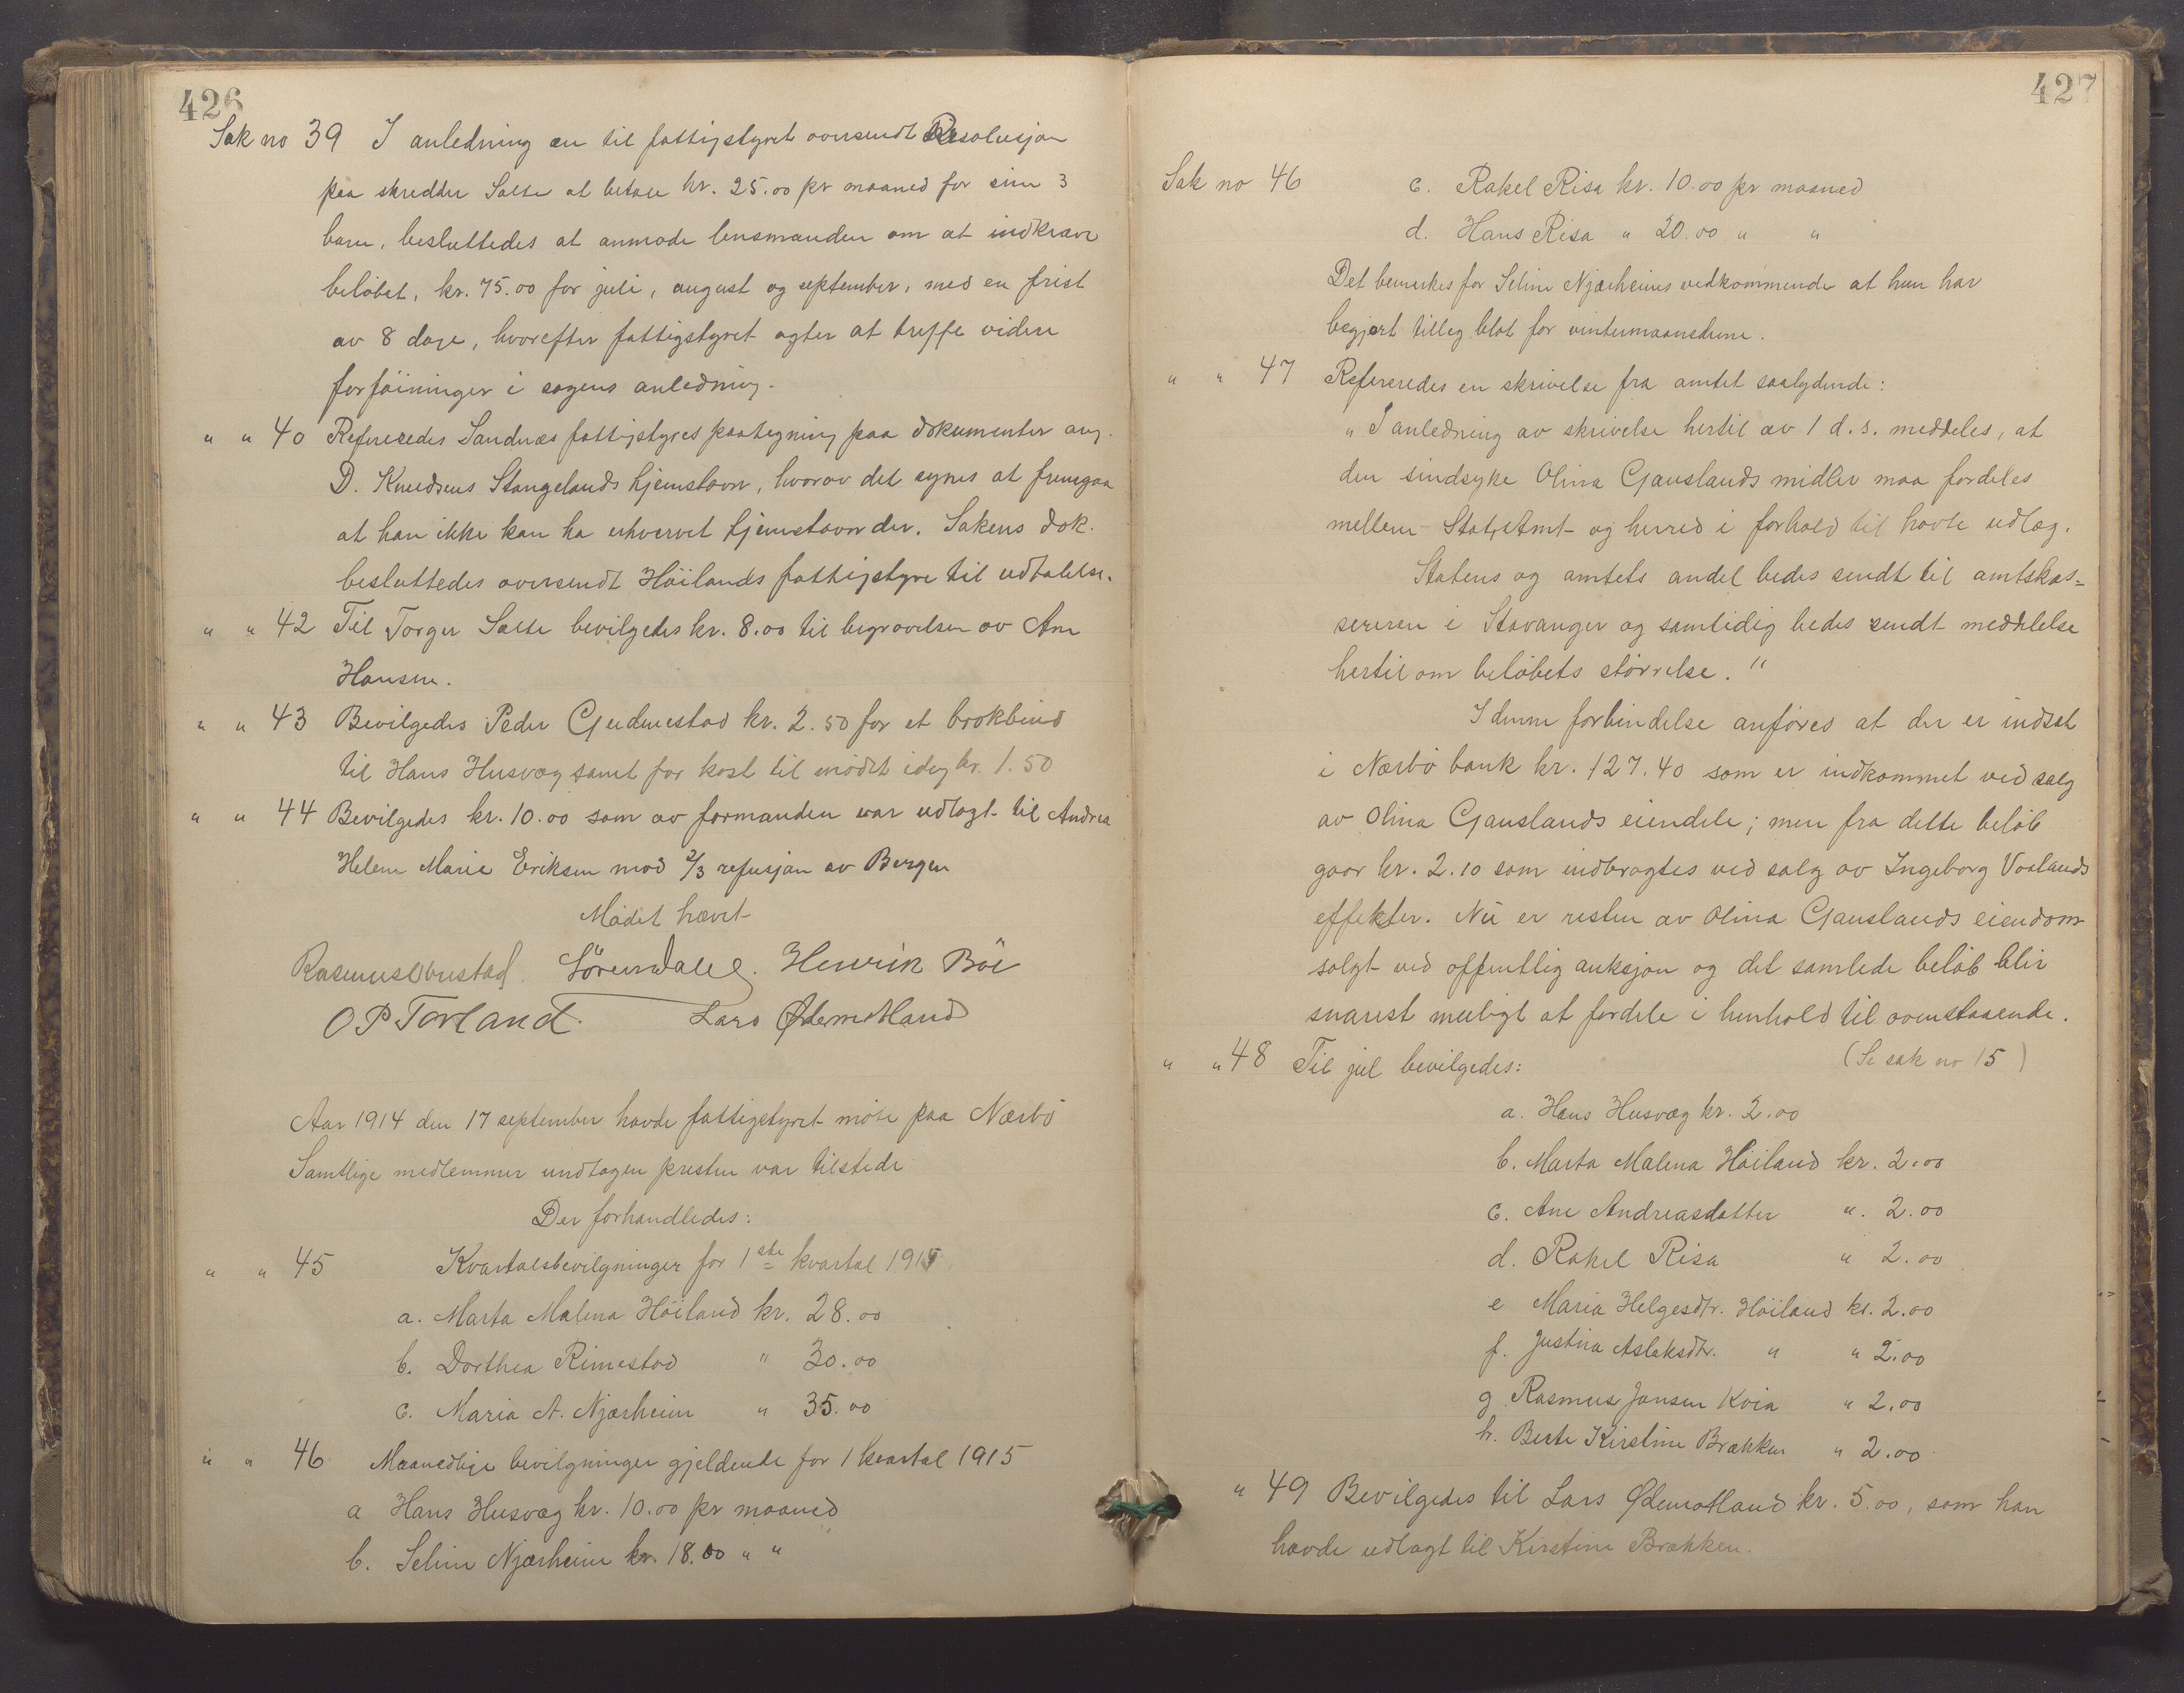 426
Sak no 39 I anledning en til fattigstyret oversendt Resolusjon
paa skredder Salte at betale kr. 25.00 pr maaned for sine 3
barn, besluttedes at anmode lensmanden om at indkræve
beløbet, kr. 75.00 for juli, august og september, med en frist
av 8 dage, hvorefter fattigstyret agter at treffe videre
forføininger i sagens anledning.
" " 40 Refereredes Sandnæs fattigstyres paategning paa dokumenter ang.
D. Knudsens Stangelands hjemstavn, hvorav det synes at fremgaa
at han ikke kan ha erhvervet hjemstavn der. Sakens dok.
besluttedes oversendt Höilands fattigstyre til udtalelse.
" " 42 Til Torger Salte bevilgedes kr. 8.00 til begravelsen av Ane
Hansen.
" " 43 Bevilgedes Peder Gudmestad kr. 2.50 for et brokbind
til Hans Husvæg samt for kost til mødet idag kr. 1.50
" " 44 Bevilgedes kr. 10.00 som av formanden var udlagt til Andrea
Helene Marie Eriksen mod 2/3 refusjon av Bergen
Mødet hævet
Rasmus Obrestad. Sörensdale. Henrik Böe
O P Torland. Lars Ødemotland
Aar 1914 den 17 september havde fattigstyret møte paa Nærbö
Samtlige medlemmer undtagen presten var tilstede
Der forhandledes:
" " 45 Kvartalsbevilgninger for 1ste kvartal 1915
a. Marta Malena Höiland kr. 28.00
b. Dorthea Rimestad " 30.00
c. Maria A. Njærheim " 35.00
" " 46 Maanedlige bevilgninger gjeldende for 1 kvartal 1915
a Hans Husvæg kr. 10.00 pr maaned
b. Seline Njærheim kr. 18.00 " "
427
Sak no 46 c. Rakel Risa kr. 10.00 pr maaned
d. Hans Risa " 20.00 " "
Det bemerkes for Seline Njærheims vedkommende at hun har
begjært tillæg blot for vintermaanederne.
" " 47 Refereredes en skrivelse fra amtet saalydende:
" I anledning av skrivelse hertil av 1 d.s. meddeles, at
den sindsyke Olina Gauslands midler maa fordeles
mellem Stat, Amt og herred i forhold til havte udlæg.
Statens og amtets andel bedes sendt til amtskas-
sereren i Stavanger og samtidig bedes sendt meddelelse
hertil om beløbets størrelse. "
I denne forbindelse anføres at der er indsat
i Nærbö bank kr. 127.40 som er indkommet ved salg
av Olina Gauslands eiendele; men fra dette beløb
gaar kr. 2.10 som indbragtes ved salg av Ingeborg Voslands
effekter. Nu er resten av Olina Gauslands eiendom
solgt ved offentlig auksjon og det samlede beløb blir
snarest mulig at fordele i henhold til ovenstaaende.
(Se sak no 15)
" " 48 Til jul bevilgedes:
a. Hans Husvæg kr. 2.00
b. Marta Malena Höiland kr. 2.00
c. Ane Andreasdatter " 2.00
d. Rakel Risa " 2.00
e Maria Helgesdtr. Höiland kr. 2.00
f. Justina Aslaksdtr. " " 2.00
g Rasmus Jansen Kvia " 2.00
h. Berte Kirstine Brækken " 2.00
" 49 Bevilgedes til Lars Ødemotland kr. 5.00, som han
havde udlagt til Kirstine Brækken.